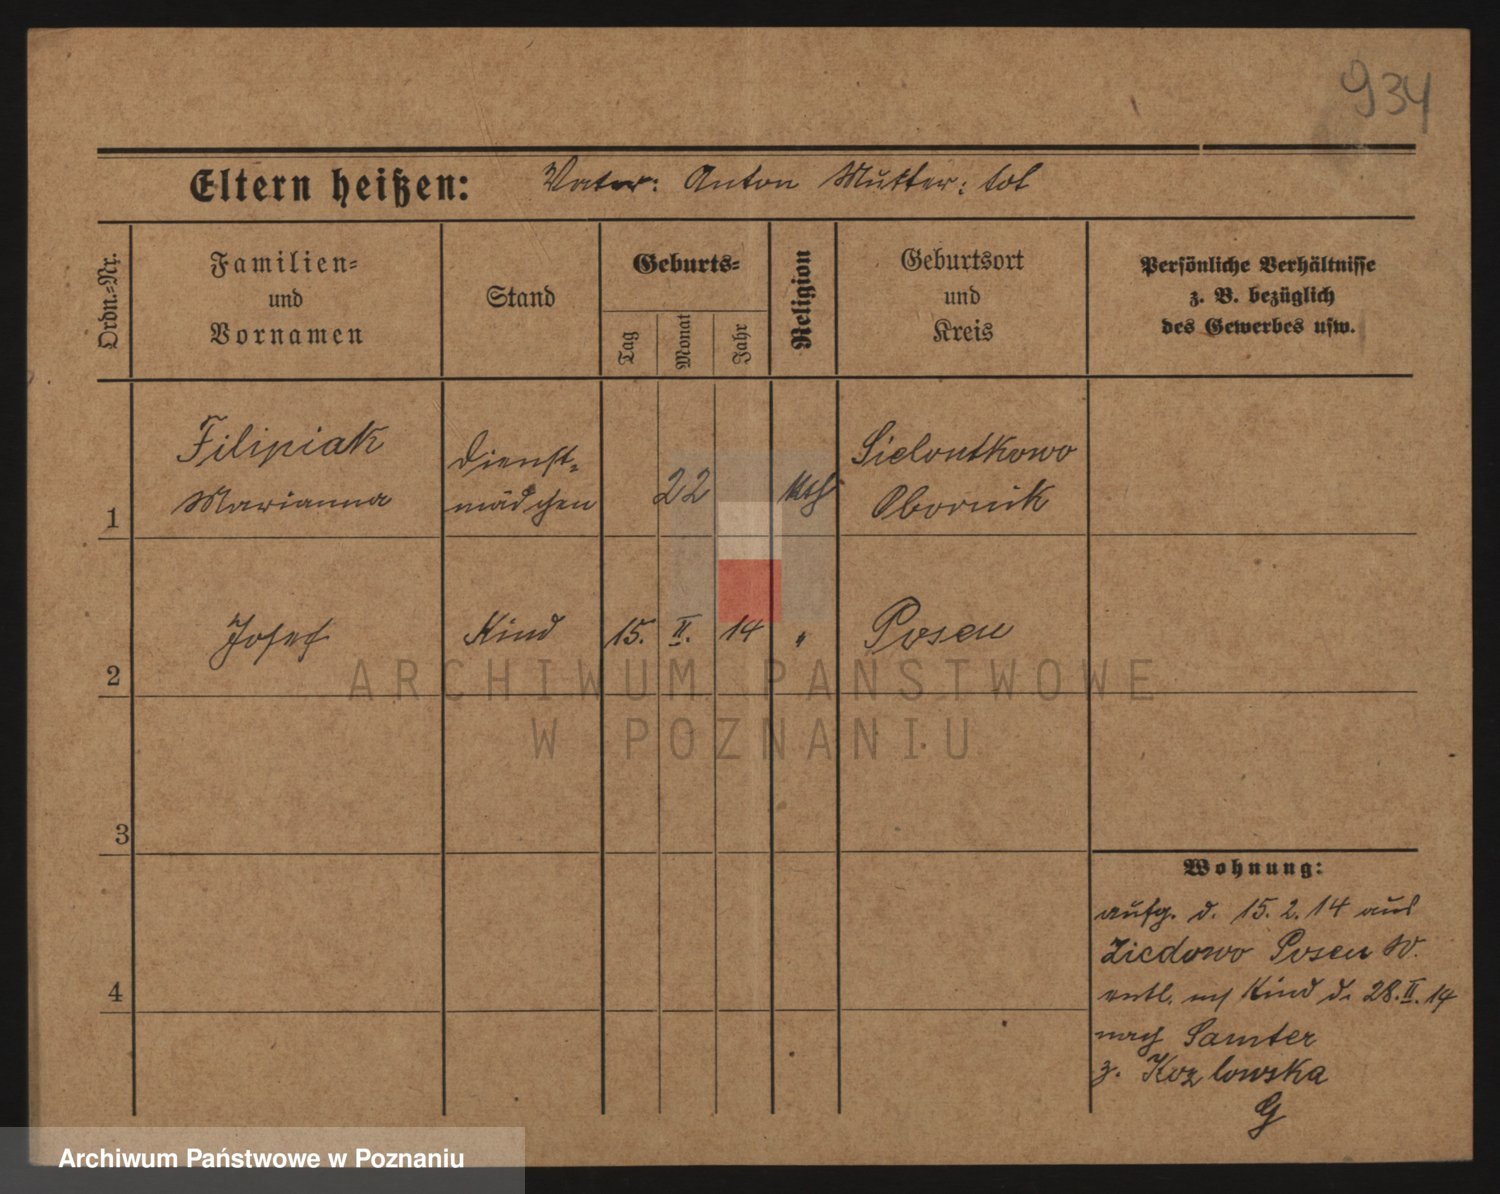 934
Eltern heißen: Vater: Anton Mutter: tot
Ordn.-Nr.
Familien-
und
Vornamen
Stand
Geburts-
Tag
Monat
Jahr
Religion
Geburtsort
und
Kreis
Persönliche Verhältnisse
z. B. bezüglich
des Gewerbes usw.
1
Filipiak
Marianna
Dienst-
mädchen
22
kth
Sielontkowo
Obornik
2
Josef
Kind
15.
II.
14
"
Posen
ARCHIWUM PAŃSTWOWE
W POZNANIU
3
4
Wohnung:
aufg. d. 15. 2. 14 aus
Posen W.
entl. Kind d. 28. II. 14
nach Samter
z. Kozlowska
G
Archiwum Państwowe w Poznaniu